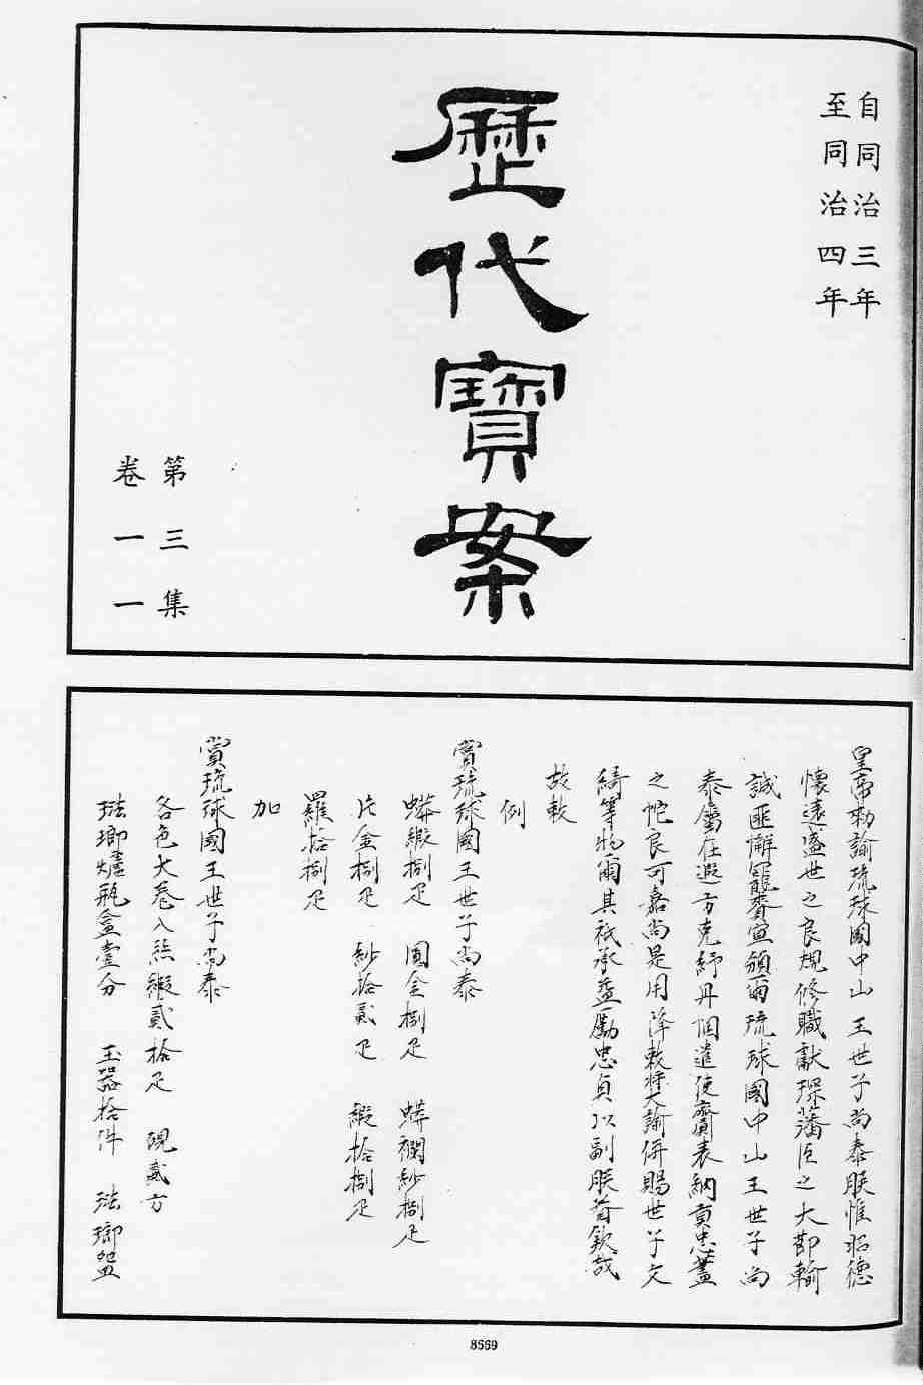 自同治三年
至同治四年
歷代寶案
第三集
卷一一
皇帝勅諭琉球國中山王世子尚泰朕惟昭德
懷遠盛世之良規修職獻琛藩臣之大節輸
誠匪懈寵賚宜頒爾琉球國中山王世子尚
泰屬在遐方克紓丹悃遣使齎表納貢忠藎
之忱良可嘉尚是用降敕獎諭併賜世子文
綺等物爾其祗承益勵忠貞以副朕眷欽哉
故敕
例
賞琉球國王世子尚泰
蟒緞捌疋 圓金捌疋 蟒襴紗捌疋
片金捌疋 紗拾貳疋 緞拾捌疋
羅拾捌疋
加
賞琉球國王世子尚泰
各色大卷八絲緞貳拾疋 硯貳方
琺瑯爐瓶盒壹分 玉器拾件 琺瑯盌
8569